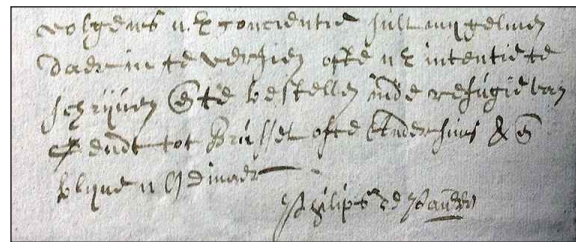 volgens u.E. concientie sult mijn gelieven
daer in te versien ofte u.E. intentie te
schrijven en te bestellen inde refugie van
tot Brussel ofte Andersins & en
blijve u
Philips de